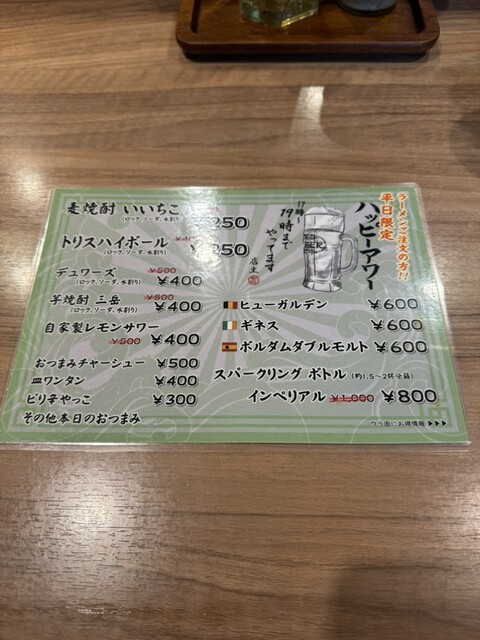 ラーメンご注文の方!!
平日限定
ハッピーアワー
17時〜
19時まで
やってます
店主
麦焼酎 いいちこ
(ロック、ソーダ、水割り)
250
トリスハイボール
(ロック、ソーダ、水割り)
¥250
デュワーズ ¥500
(ロック、ソーダ、水割り) ¥400
芋焼酎 三岳 ¥500
(ロック、ソーダ、水割り) ¥400
自家製レモンサワー
¥500 ¥400
おつまみチャーシュー ¥500
皿ワンタン ¥400
ピリ辛やっこ ¥300
その他本日のおつまみ
ヒューガルデン ¥600
ギネス ¥600
ボルダムダブルモルト ¥600
スパークリング ボトル (約1.5〜2杯分)
インペリアル ¥1,000 ¥800
ウラ面にお得情報 ▶▶▶